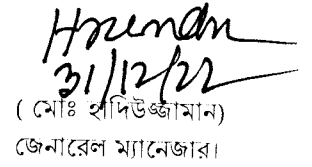 31/12/22
( মোঃ হাদিউজ্জামান)
জেনারেল ম্যানেজার।